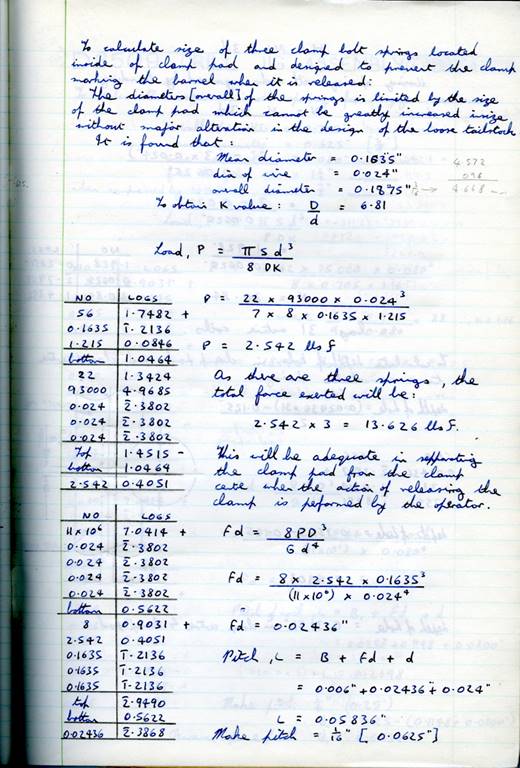 To calculate size of three clamp bolt springs located
inside of clamp pad and designed to prevent the clamp
marking the barrel when it is released:
The diameters [overall] of the springs is limited by the size
of the clamp pad which cannot be greatly increased insize
without major alteration in the design of the loose tailstock
It is found that:
Mean diameter = 0.1635"
dia of wire = 0.024"
overall diameter = 0.1875"
4.572
096
4.668
To obtain K value: D/d = 6.81
Load, P = π S d³ / 8 DK
NO LOGS
56 1.7482 +
0.1635 1̄.2136
1.215 0.0846
bottom 1.0464
22 1.3424
93000 4.9685
0.024 2̄.3802
0.024 2̄.3802
0.024 2̄.3802
Top 1.4515 -
bottom 1.0469
2.542 0.4051
P = 22 x 93000 x 0.024³ / 7 x 8 x 0.1635 x 1.215
P = 2.542 lbs f
As there are three springs, the
total force exerted will be:
2.542 x 3 = 13.626 lbs f.
This will be adequate in separating
the clamp pad from the clamp
cete when the action of releasing the
clamp is peformed by the operator.
NO LOGS
11 x 10⁶ 7.0414 +
0.024 2̄.3802
0.024 2̄.3802
0.024 2̄.3802
0.024 2̄.3802
bottom 0.5622
8 0.9031 +
2.542 0.4051
0.1635 1̄.2136
0.1635 1̄.2136
0.1635 1̄.2136
top 2̄.9490
bottom 0.5622
0.02436 2̄.3868
Fd = 8PD³ / G d⁴
Fd = 8 x 2.542 x 0.1635³ / (11 x 10⁶) x 0.024⁴
=
Fd = 0.02436"
Pitch, L = B + Fd + d
= 0.006" + 0.02436" + 0.024"
L = 0.05836"
Make pitch = 1/16" [0.0625"]